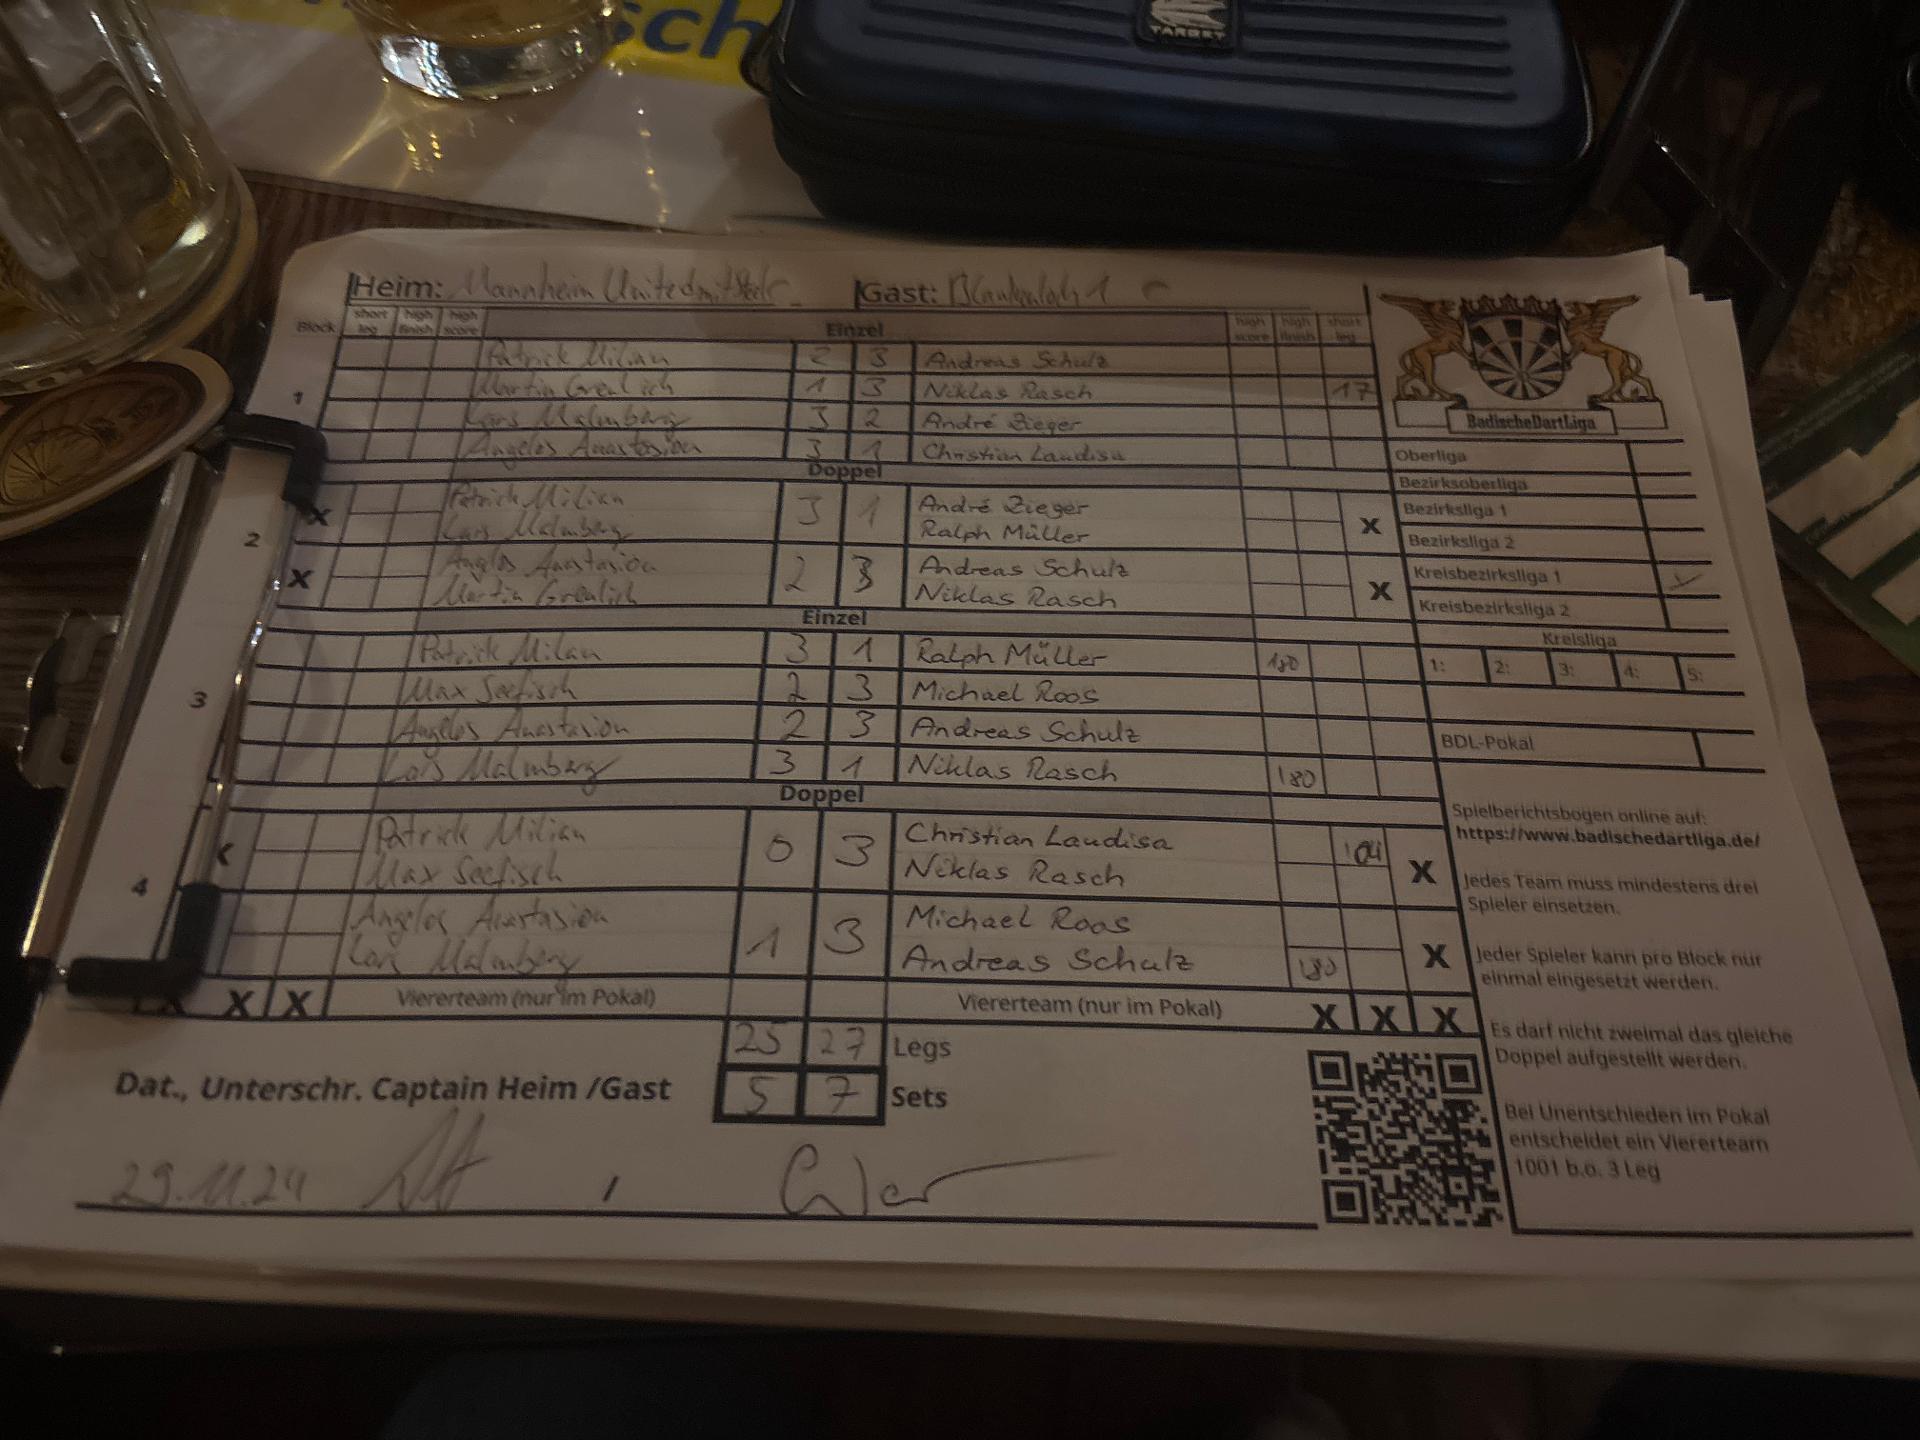 sch
TARGET
Heim: Mannheim United mit Gast: Blankenloch 1
Block short leg high finish high score Einzel high score high finish short leg
Patrick Milian 2 3 Andreas Schulz
1 Martin Greulich 1 3 Niklas Rasch 17
Lars Malmberg 3 2 André Zieger
Angelos Anastasiou 3 1 Christian Laudisa
Doppel
2
X Patrick Milian 3 1 André Zieger X
Lars Malmberg Ralph Müller
X Anglos Anastasiou 2 3 Andreas Schulz X
Martin Greulich Niklas Rasch
Einzel
3
Patrick Milan 3 1 Ralph Müller 180
Max Seefisch 2 3 Michael Roos
Angelos Anastasiou 2 3 Andreas Schulz
Lars Malmberg 3 1 Niklas Rasch 180
Doppel
4
Patrick Milian 0 3 Christian Laudisa 104 X
Max Seefisch Niklas Rasch
Angelos Anastasiou 1 3 Michael Roos X
Lars Malmberg Andreas Schulz 180
X X X Viererteam (nur im Pokal) Viererteam (nur im Pokal) X X X
25 27 Legs
5 7 Sets
Dat., Unterschr. Captain Heim /Gast
29.11.24 /
BadischeDartLiga
Oberliga
Bezirksoberliga
Bezirksliga 1
Bezirksliga 2
Kreisbezirksliga 1
Kreisbezirksliga 2
Kreisliga
1: 2: 3: 4: 5:
BDL-Pokal
Spielberichtsbogen online auf:
https://www.badischedartliga.de/
Jedes Team muss mindestens drei
Spieler einsetzen.
Jeder Spieler kann pro Block nur
einmal eingesetzt werden.
Es darf nicht zweimal das gleiche
Doppel aufgestellt werden.
Bei Unentschieden im Pokal
entscheidet ein Viererteam
1001 b.o. 3 Leg